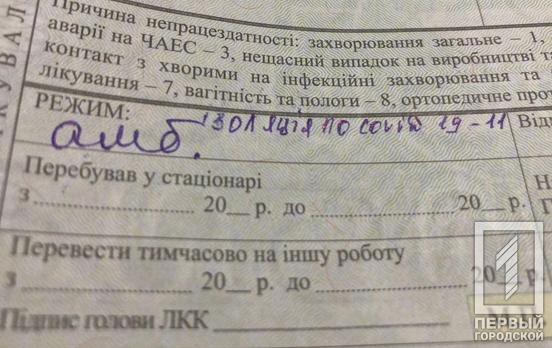 КУВАЛ
Причина непрацездатності: захворювання загальне – 1,
аварії на ЧАЕС – 3, нещасний випадок на виробництві та
контакт з хворими на інфекційні захворювання та
лікування – 7, вагітність та пологи – 8, ортопедичне про
РЕЖИМ:
амб. ізоляція по covid 19 – 11
Відп
Перебував у стаціонарі
з 20__ р. до 20__ р.
Перевести тимчасово на іншу роботу
з 20__ р. до 20
Підпис голови ЛКК
ПЕРВЫЙ
ГОРОДСКОЙ